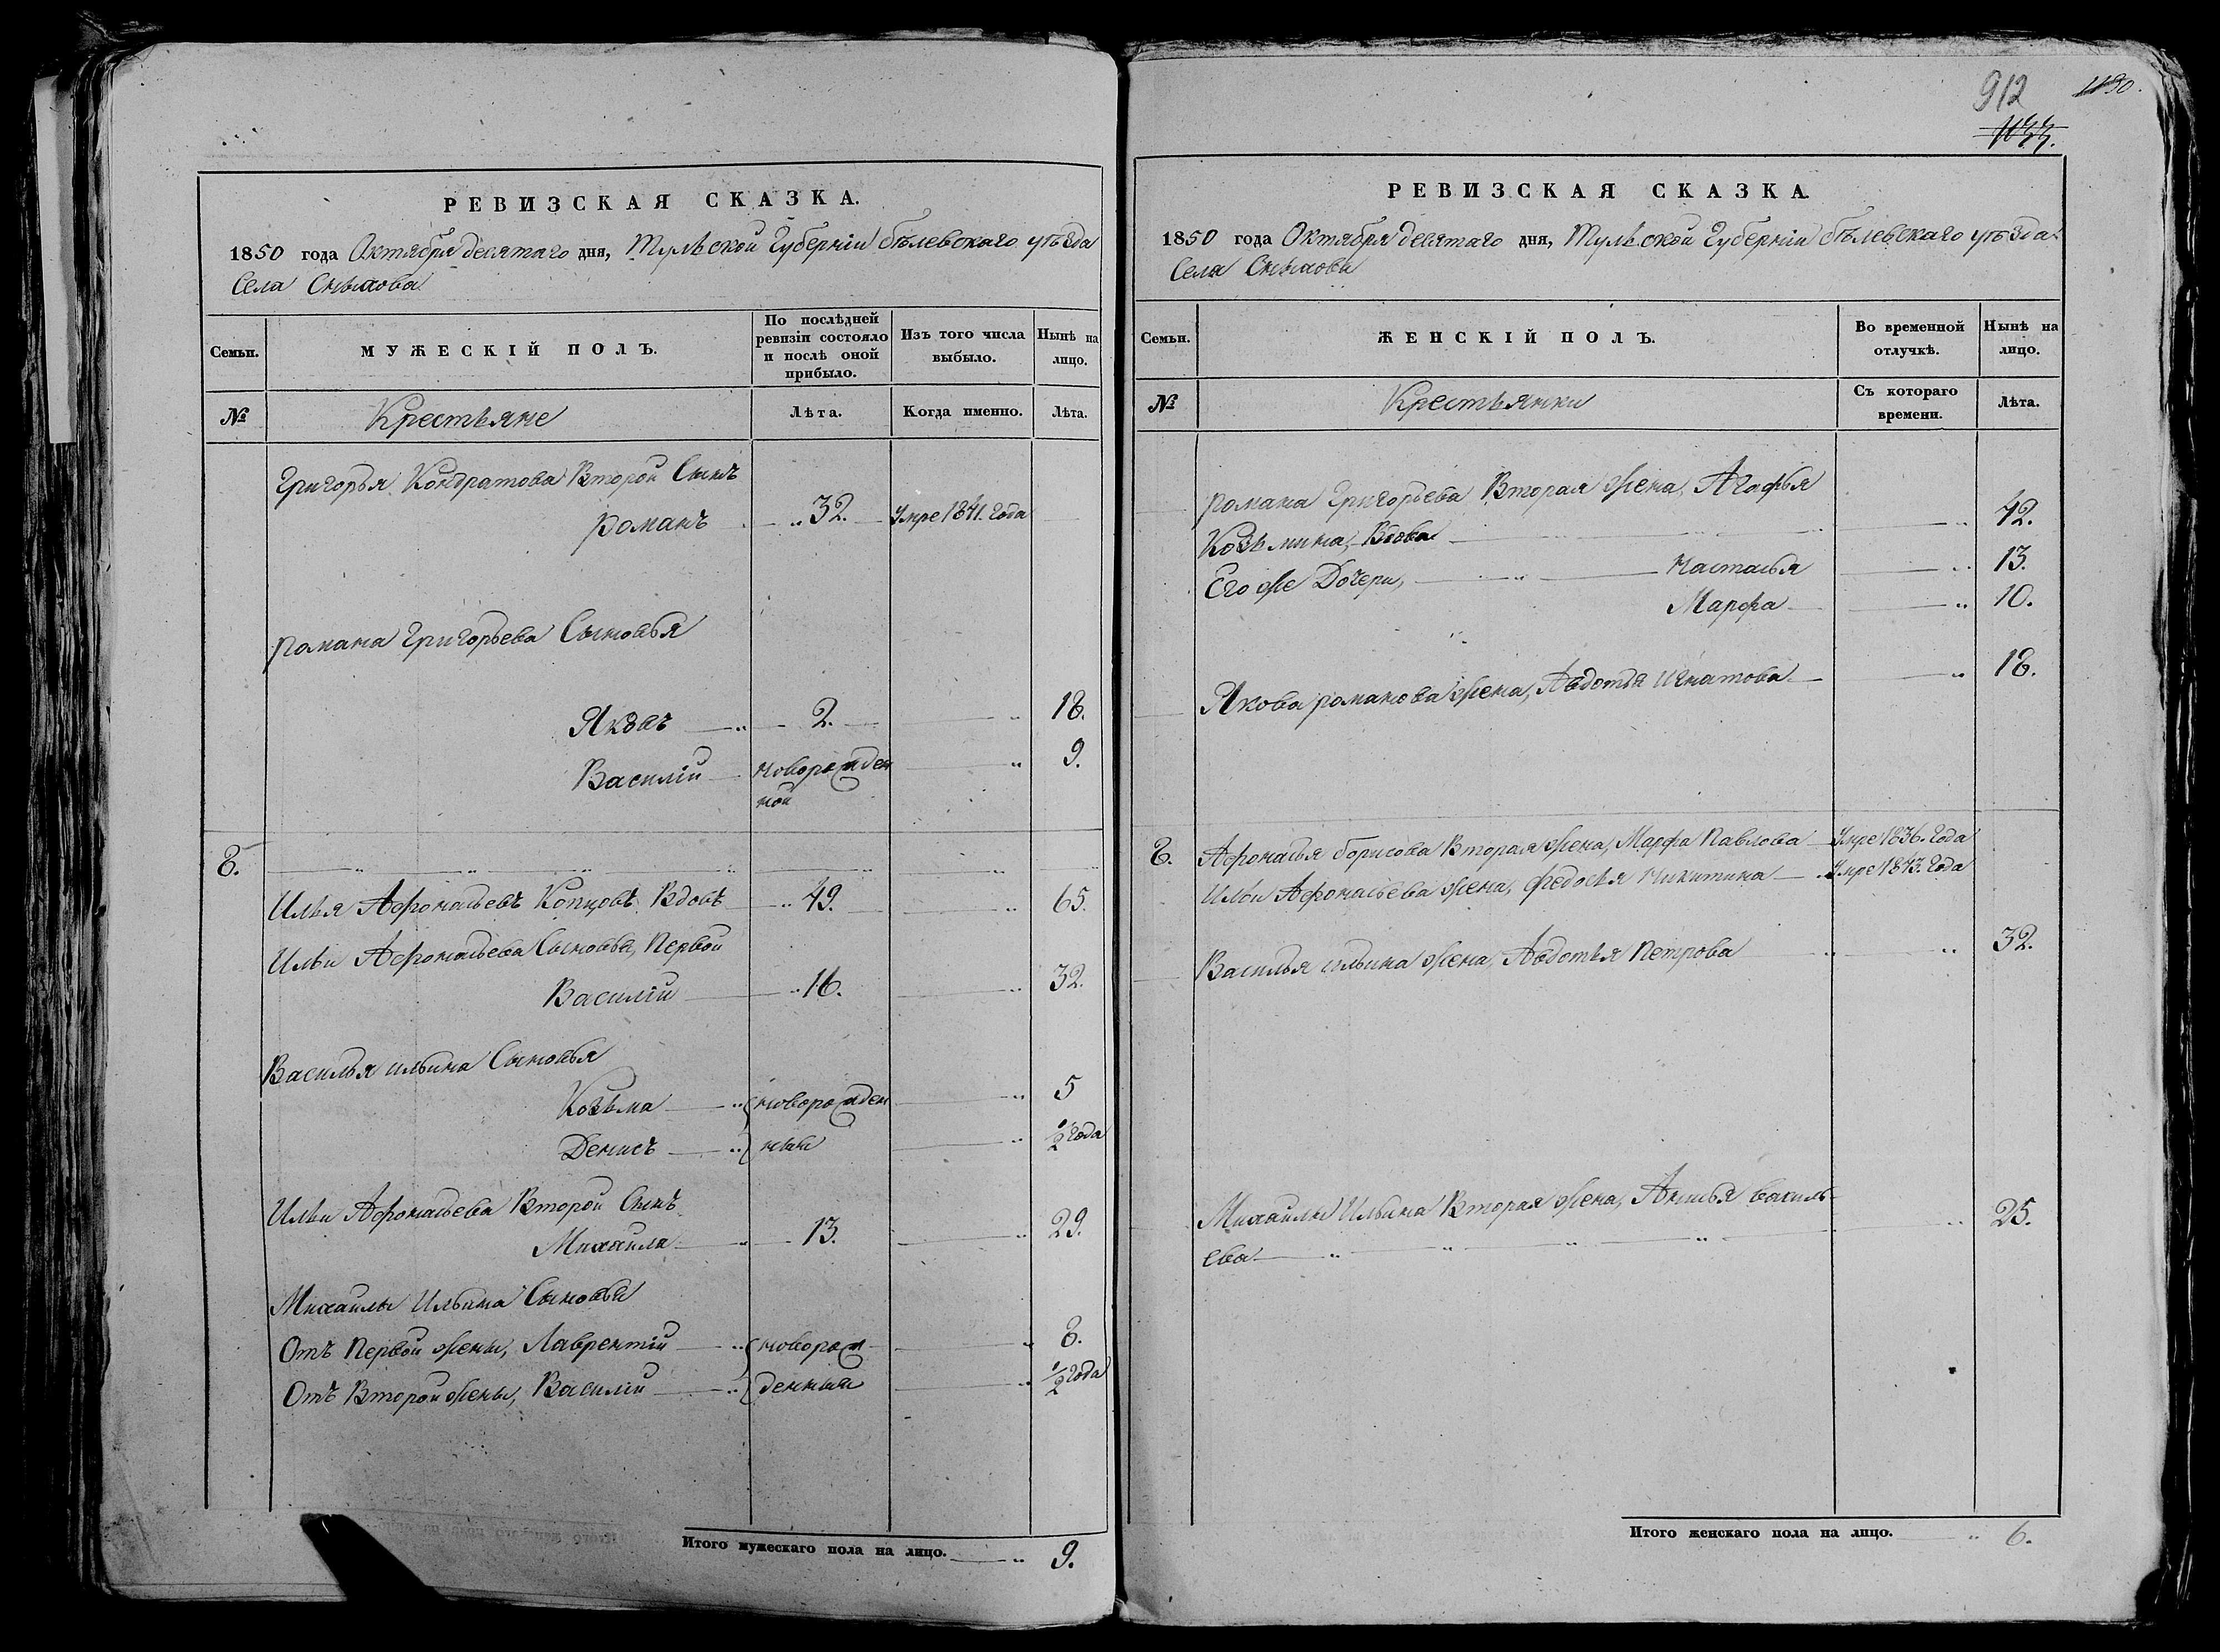 РЕВИЗСКАЯ СКАЗКА.
1850 года Октября десятаго дня, Тульской Губерніи бѣлевскаго уѣзда
Села Сныхова
Семьи.
МУЖЕСКІЙ ПОЛЪ.
По послѣдней ревизіи состояло и послѣ оной прибыло.
Изъ того числа выбыло.
Нынѣ на лицо.
№
Крестьяне
Лѣта.
Когда именно.
Лѣта.
Григорья Кондратова Второй Сынъ
романъ 32. Умре 1841. Года
романа Григорьева Сыновья
Яковъ 2. 18.
Василій новорожден 9.
ной
8.
Илья Афонасьевъ Копцовъ Вдовъ 49. 65.
Ильи Афонасьева Сыновья, Первой
Василій 16. 32.
Василья ильина Сыновья
Козьма новорожден 5
Денисъ ныи 1/2 года
Ильи Афонасьева Второй Сынъ
Михаила 13. 29.
Михаилы Ильина Сыновья
Отъ Первой жены, Лаврентій новорож 8.
Отъ Второй жены, Василій денныи 1/2 года
Итого мужескаго пола на лицо. 9.
912
1130.
1033.
РЕВИЗСКАЯ СКАЗКА.
1850 года Октября десятаго дня, Тульской Губерніи бѣлевскаго уѣзда
Села Сныхова
Семьи.
ЖЕНСКІЙ ПОЛЪ.
Во временной отлучкѣ.
Нынѣ на лицо.
№
Крестьянки
Съ котораго времени.
Лѣта.
романа Григорьева Вторая жена, Агафья
Козьмина, Вдова 42.
Его же Дочери, Настасья 13.
Марфа 10.
Якова романова жена, Авдотья игнатова 18.
8. Афонасья борисова Вторая жена, Марфа Павлова Умре 1836. Года
Ильи Афонасьева жена, федосья никитина Умре 1843. Года
Василья ильина жена, Авдотья Петрова 32.
Михаилы Ильина Вторая жена, Анисья василь-
ева 25.
Итого женскаго пола на лицо. 6.